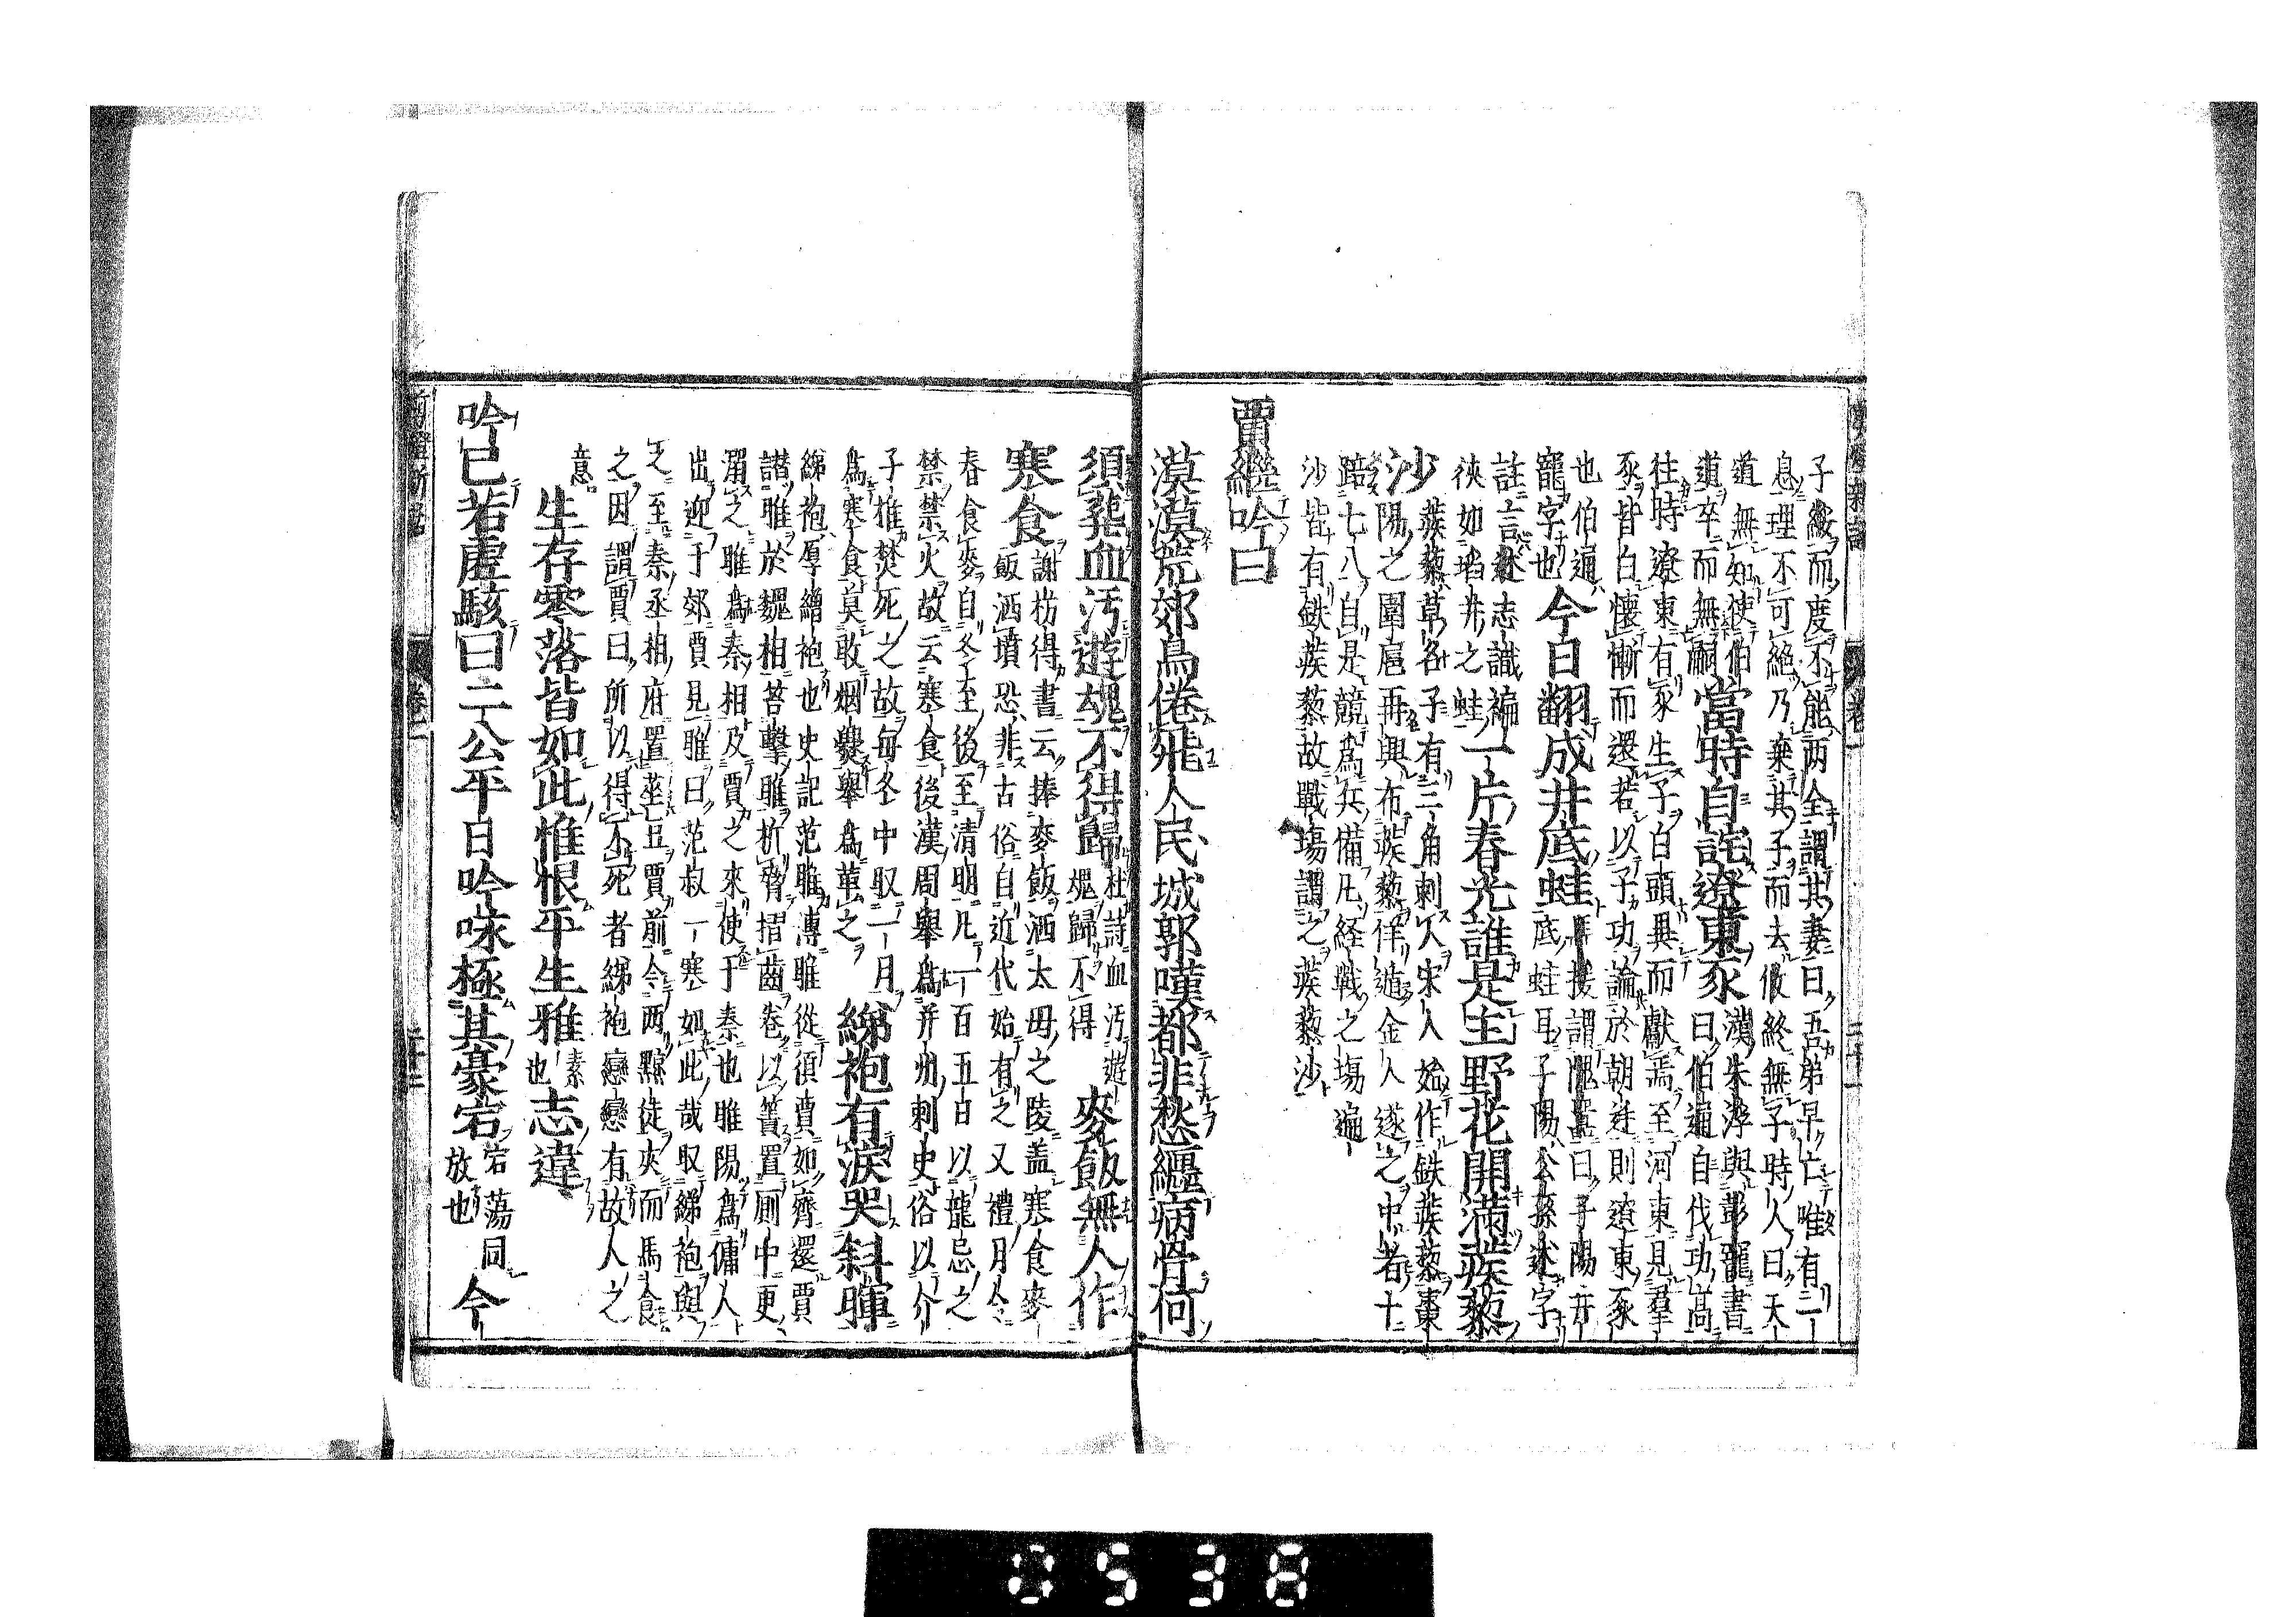 子綏而度不能両全謂其妻曰吾弟早亡唯有一
息理不可絶乃棄其子而去後終無子時人曰天
道無知使伯
道卒而無嗣當時自詫遼東豕漢朱浮與彭寵書
曰伯通自伐功高
往時遼東有豕生子白頭異而獻焉至河東見羣
豕皆白懷慚而還若以子功論於朝廷則遼東豕
也伯通
寵字也今日翻成井底蛙馬援謂隗囂曰子陽井
底蛙耳子陽公孫述字
註言述志識褊
狹如埳井之蛙一片春光誰是主野花開満蒺藜
沙蒺藜草名子有三角刺人宋人始作鉄蒺藜棗
陽之圍扈再興布蒺藜佯遁金人遂之中者十
踣七八自是競為兵備凡経戰之塲遍
沙皆有鉄蒺藜故戰塲謂之蒺藜沙
賈繼吟曰
漠漠荒郊鳥倦飛人民城郭嘆都非愁纒病骨何
須葬血汚遊魂不得歸杜詩血汚遊
魂歸不得麥飯無人作
寒食謝枋得書云捧麥飯洒太母之陵盖寒食麥
飯洒墳恐非古俗自近代始有之又禮月令
春食麥自冬至後至清明凡一百五日以龍忌之
禁禁火故云寒食後漢周舉為并州刺史俗以介
子推焚死之故毎冬中取一月
為寒食莫敢烟爨舉為革之綈袍有淚哭斜暉
綈袍厚繒袍也史記范雎傳雎從須賈如齊還賈
譖雎於魏相笞擊雎折脅摺齒卷以簀置厠中更
溺之雎為秦相及賈之來使于秦也雎陽為傭人
出迎于郊賈見雎曰范叔一寒如此哉取綈袍與
之至秦丞相府置莝豆賈前令両黥徒夾而馬食
之因謂賈曰所以得不死者綈袍戀戀有故人之
意
生存寒落皆如此惟恨平生雅素
也志違
吟已若虚駭曰二公平日吟咏極其豪宕宕蕩同
放也今